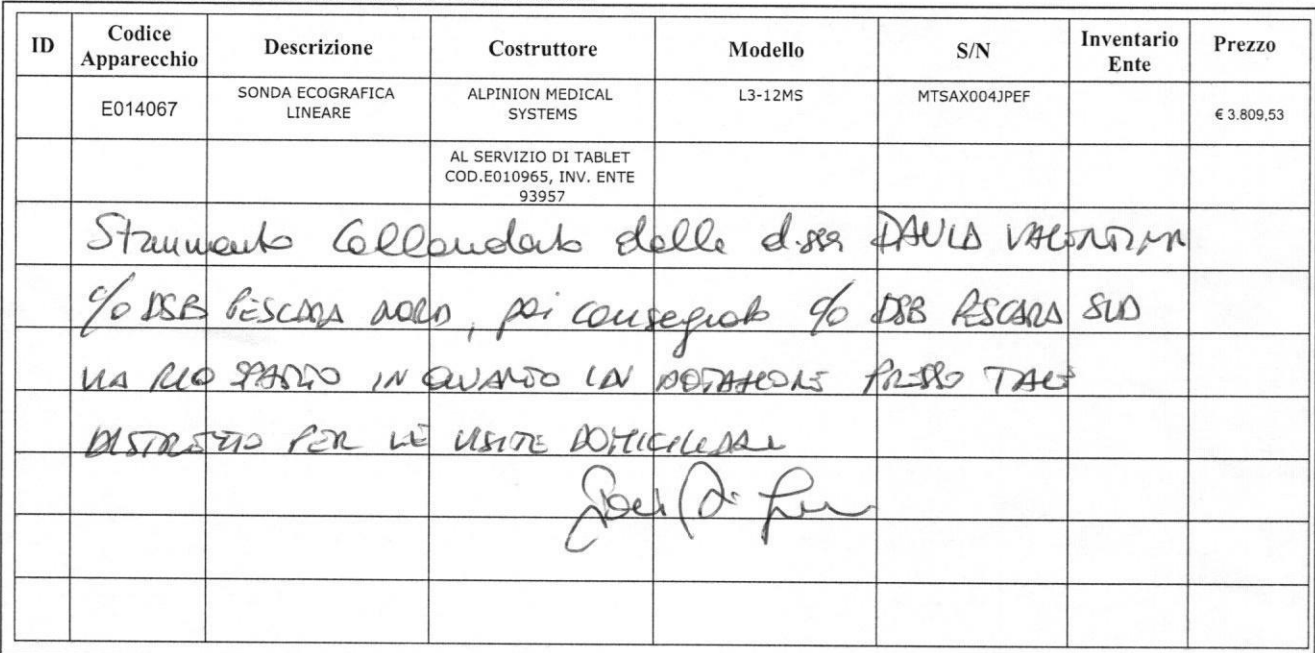 ID Codice Apparecchio Descrizione Costruttore Modello S/N Inventario Ente Prezzo
E014067 SONDA ECOGRAFICA LINEARE ALPINION MEDICAL SYSTEMS L3-12MS MTSAX004JPEF € 3.809,53
AL SERVIZIO DI TABLET
COD.E010965, INV. ENTE
93957
Strumento Collaudato dalla d.ssa PAOLA
c/o DSB PESCARA NORD, poi consegnato c/o DSB PESCARA SUD
VIA RIO SPARTO IN QUANTO IN DOTAZIONE PRESSO TALE
DISTRETTO PER LE VISITE DOMICILIARI